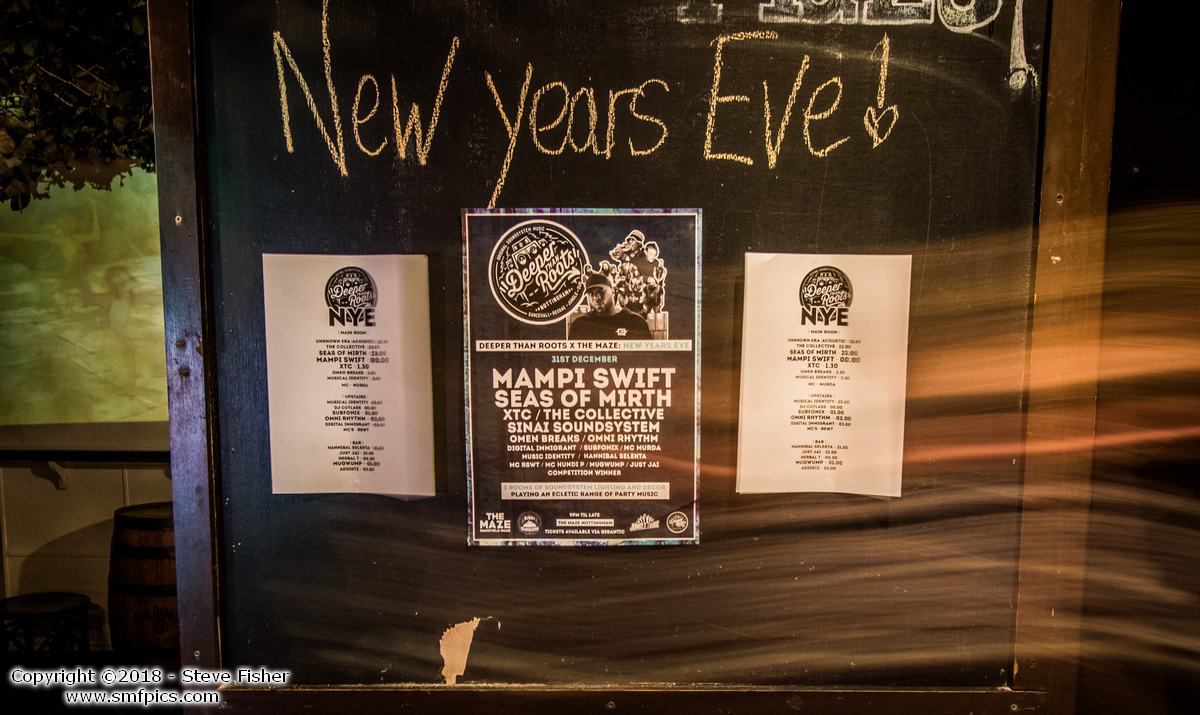 New years Eve!
DEEPER ROOTS
NYE
MAIN ROOM
UNKNOWN ERA (ACOUSTIC) · 21:00
THE COLLECTIVE · 22:00
SEAS OF MIRTH · 23:00
MAMPI SWIFT · 00:00
XTC · 1.30
OMEN BREAKS · 2.30
MUSICAL IDENTITY · 3.30
MC · MURDA
UPSTAIRS
MUSICAL IDENTITY · 23.00
DJ CUTLASS · 00.00
SUBFONIX · 01.00
OMNI RHYTHM · 02.00
DIGITAL IMMIGRANT · 03.00
MC'S · RSWT
BAR
HANNIBAL SELEKTA · 21.00
JUST JAI · 22.00
HERBAL T · 00.00
MUGWUMP · 01.00
ORIGINAL SOUNDSYSTEM MUSIC
Deeper THAN Roots
NOTTINGHAM
DEEPER THAN ROOTS X THE MAZE: NEW YEARS EVE
31ST DECEMBER
MAMPI SWIFT
SEAS OF MIRTH
XTC / THE COLLECTIVE
SINAI SOUNDSYSTEM
OMEN BREAKS / OMNI RHYTHM
DIGITAL IMMIGRANT / SUBFONIX / MC MURDA
MUSIC IDENTITY / HANNIBAL SELEKTA
MC RSWT / MC HUNDI P / MUGWUMP / JUST JAI
COMPETITION WINNER
3 ROOMS OF SOUNDSYSTEM LIGHTING AND DECOR
PLAYING AN ECLETIC RANGE OF PARTY MUSIC
THE MAZE
MANSFIELD ROAD
9PM TIL LATE
THE MAZE NOTTINGHAM
TICKETS AVAILABLE VIA GIGANTIC
Deeper Roots
NYE
MAIN ROOM
UNKNOWN ERA (ACOUSTIC) · 21:00
THE COLLECTIVE · 22:00
SEAS OF MIRTH · 23.00
MAMPI SWIFT · 00:00
XTC · 1.30
OMEN BREAKS · 2.30
MUSICAL IDENTITY · 3.30
MC · MURDA
UPSTAIRS
MUSICAL IDENTITY · 23.00
DJ CUTLASS · 00.00
SUBFONIX · 01.00
OMNI RHYTHM · 02.00
DIGITAL IMMIGRANT · 03.00
MC'S · RSWT
BAR
HANNIBAL SELEKTA · 21.00
JUST JAI · 22.00
HERBAL T · 00.00
MUGWUMP · 01.00
Copyright ©2018 - Steve Fisher
www.smfpics.com